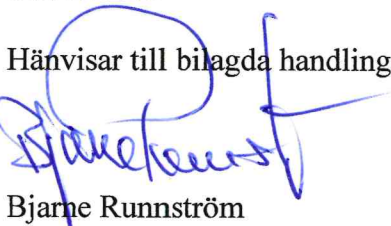 Hänvisar till bilagda handling
Bjarne Runnström